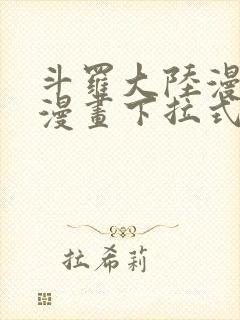 斗羅大陸漫
漫畫下拉式
拉希莉